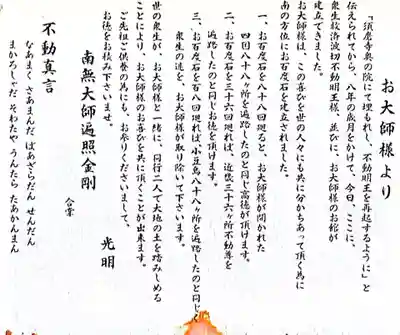 お大師様より
「須磨寺奥の院にて埋もれし、不動明王を再起するように」と
伝えられてから、八年の歳月をかけて、今日、ここに、
衆生救済波切不動明王様、並びに、お大師様のお館が
建立できました。
お大師様は、この喜びを世の人々にも共に分かちあって頂く為に
南の方位にお百度石を建立されました。
一、お百度石を八十八廻ると、お大師様が開かれた
四国八十八ヶ所を遍路したのと同じ高徳が頂けます。
二、お百度石を三十六廻れば、近畿三十六ヶ所不動尊を
遍路したのと同じお徳を頂けます。
三、お百度石を百八廻れば小豆島八十八ヶ所を遍路したのと同じく
衆生の迷を、お大師様が取り除いて下さいます。
世の衆生が、お大師様と一緒に、同行二人で大地の土を踏みしめる
ことにより、お大師様のお喜びを共に頂くことが出来ます。
ご先祖ご供養の為にも、お祈りくださいまして、
お徳をお積み下さいませ。
光明
南無大師遍照金剛
合掌
不動真言
なあまく さあまんだ ばあざらだん せんだん
まかろしゃだ そわたや うんたら たあかんまん